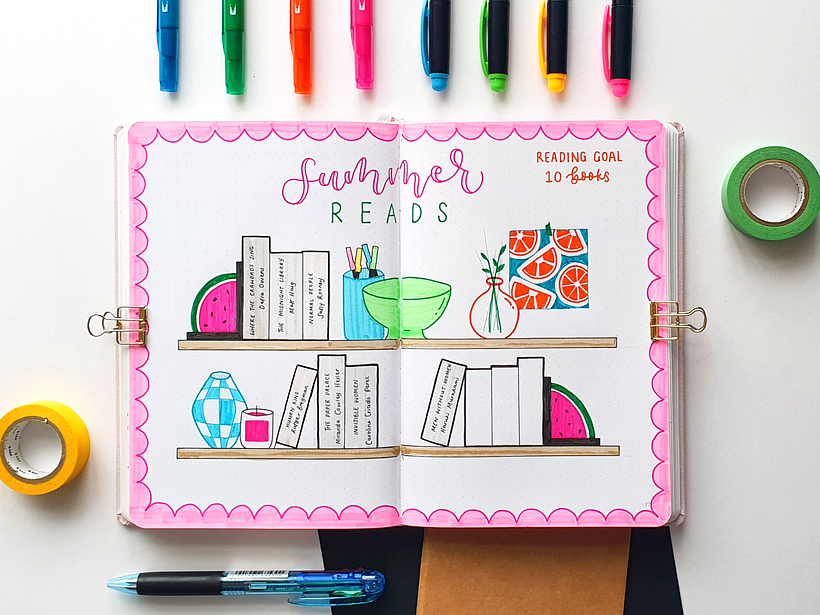 Summer
READS
READING GOAL
10 books
WHERE THE CRAWDADS SING
Delia Owens
THE MIDNIGHT LIBRARY
Matt Haig
NORMAL PEOPLE
Sally Rooney
HUMAN KIND
Rutger Bregman
THE PAPER PALACE
Miranda Cowley Heller
INVISIBLE WOMEN
Caroline Criado Perez
MEN WITHOUT WOMEN
Haruki Murakami